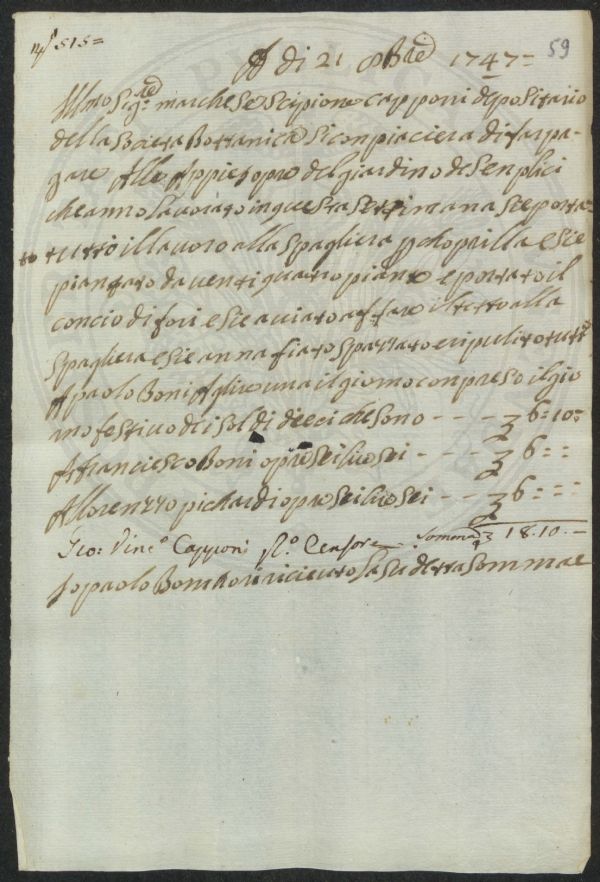 515=
59
A di 21 8Bre 1747=
Illmo Sigre marchese Scipione Capponi depositario
della Società Bottanica si conpiacierà di far pa-
gare Alle Appiè opre del giardino de Senplici
che anno lavorato in questa settimana si è porta-
to tutto il lavoro alla spagliera e si è
piantato da venti quatro piante e portato il
concio di fori e si è aviato affare il tetto alla
spagliera e si è annafiato spazzato e ripulito tutto
A paolo Boni A lire una il giorno conpreso il gio
rno festivo di soldi dieci che sono - - - - £ 6=10=
A franciesco Boni opre sei lire sei - - - - £ 6==
A llorenzzo pichardi opre sei lire sei - - - £ 6===
Gio: Vinco Capponi Censore. Somma £ 18.10.-
Io paolo Boni ò ricieuto la su detta somma e